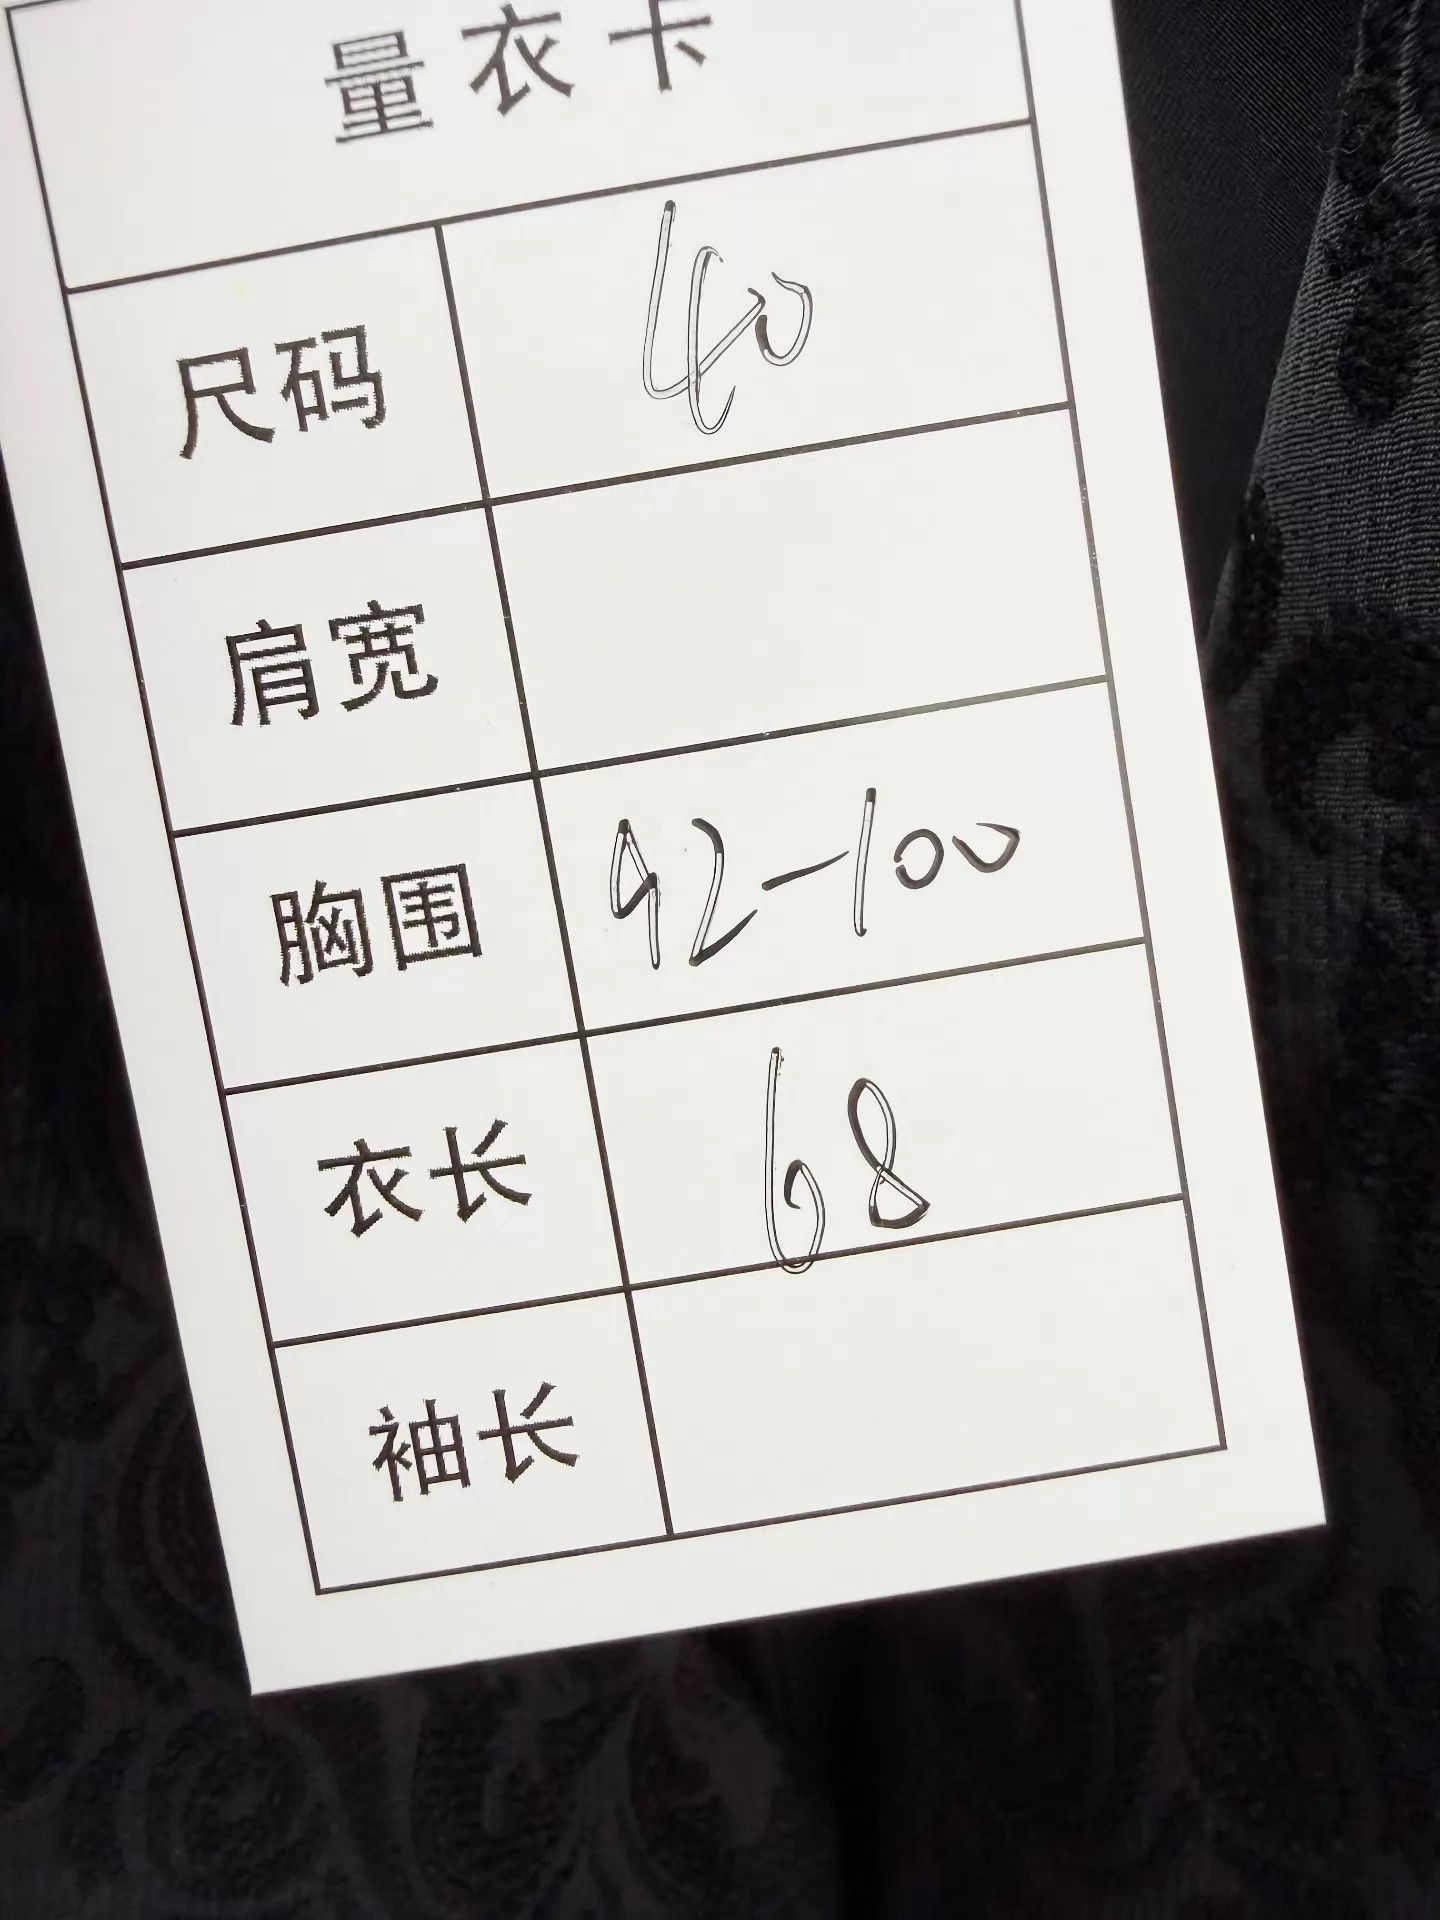 量衣卡
尺码 40
肩宽
胸围 92-100
衣长 68
袖长